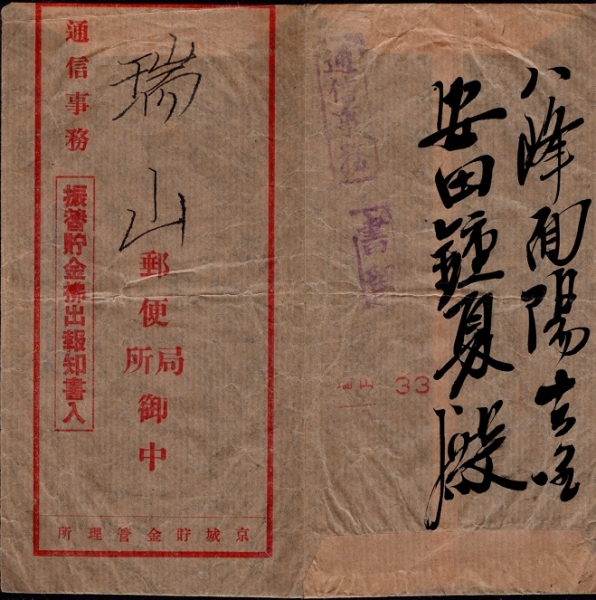 八峰面陽古里
安田鍾夏殿
通信事務
書留
33
瑞山
郵便局所御中
通信事務
振替貯金拂出報知書入
京城貯金管理所